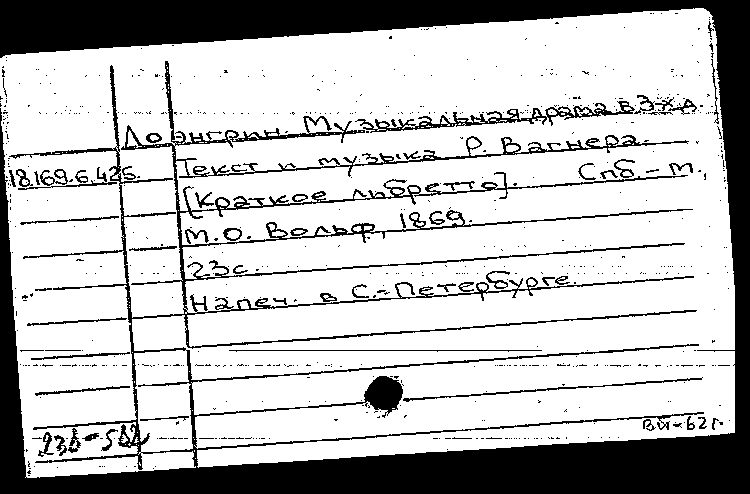 Лоэнгрин. Музыкальная драма в 3-х д.
18.169.6.426. Текст и музыка Р. Вагнера.
[Краткое либретто]. Спб.-М.,
М.О. Вольф, 1869.
23с.
Напеч. в С.-Петербурге.
ВИ-62г.